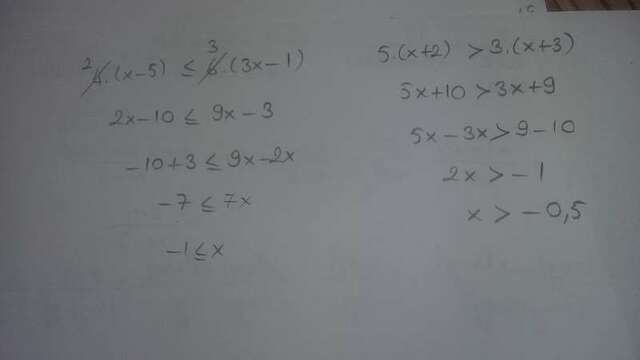 2 3
4.(x-5) ≤ 6.(3x-1)
2x-10 ≤ 9x-3
-10+3 ≤ 9x-2x
-7 ≤ 7x
-1 ≤ x
5.(x+2) > 3.(x+3)
5x+10 > 3x+9
5x-3x > 9-10
2x > -1
x > -0,5